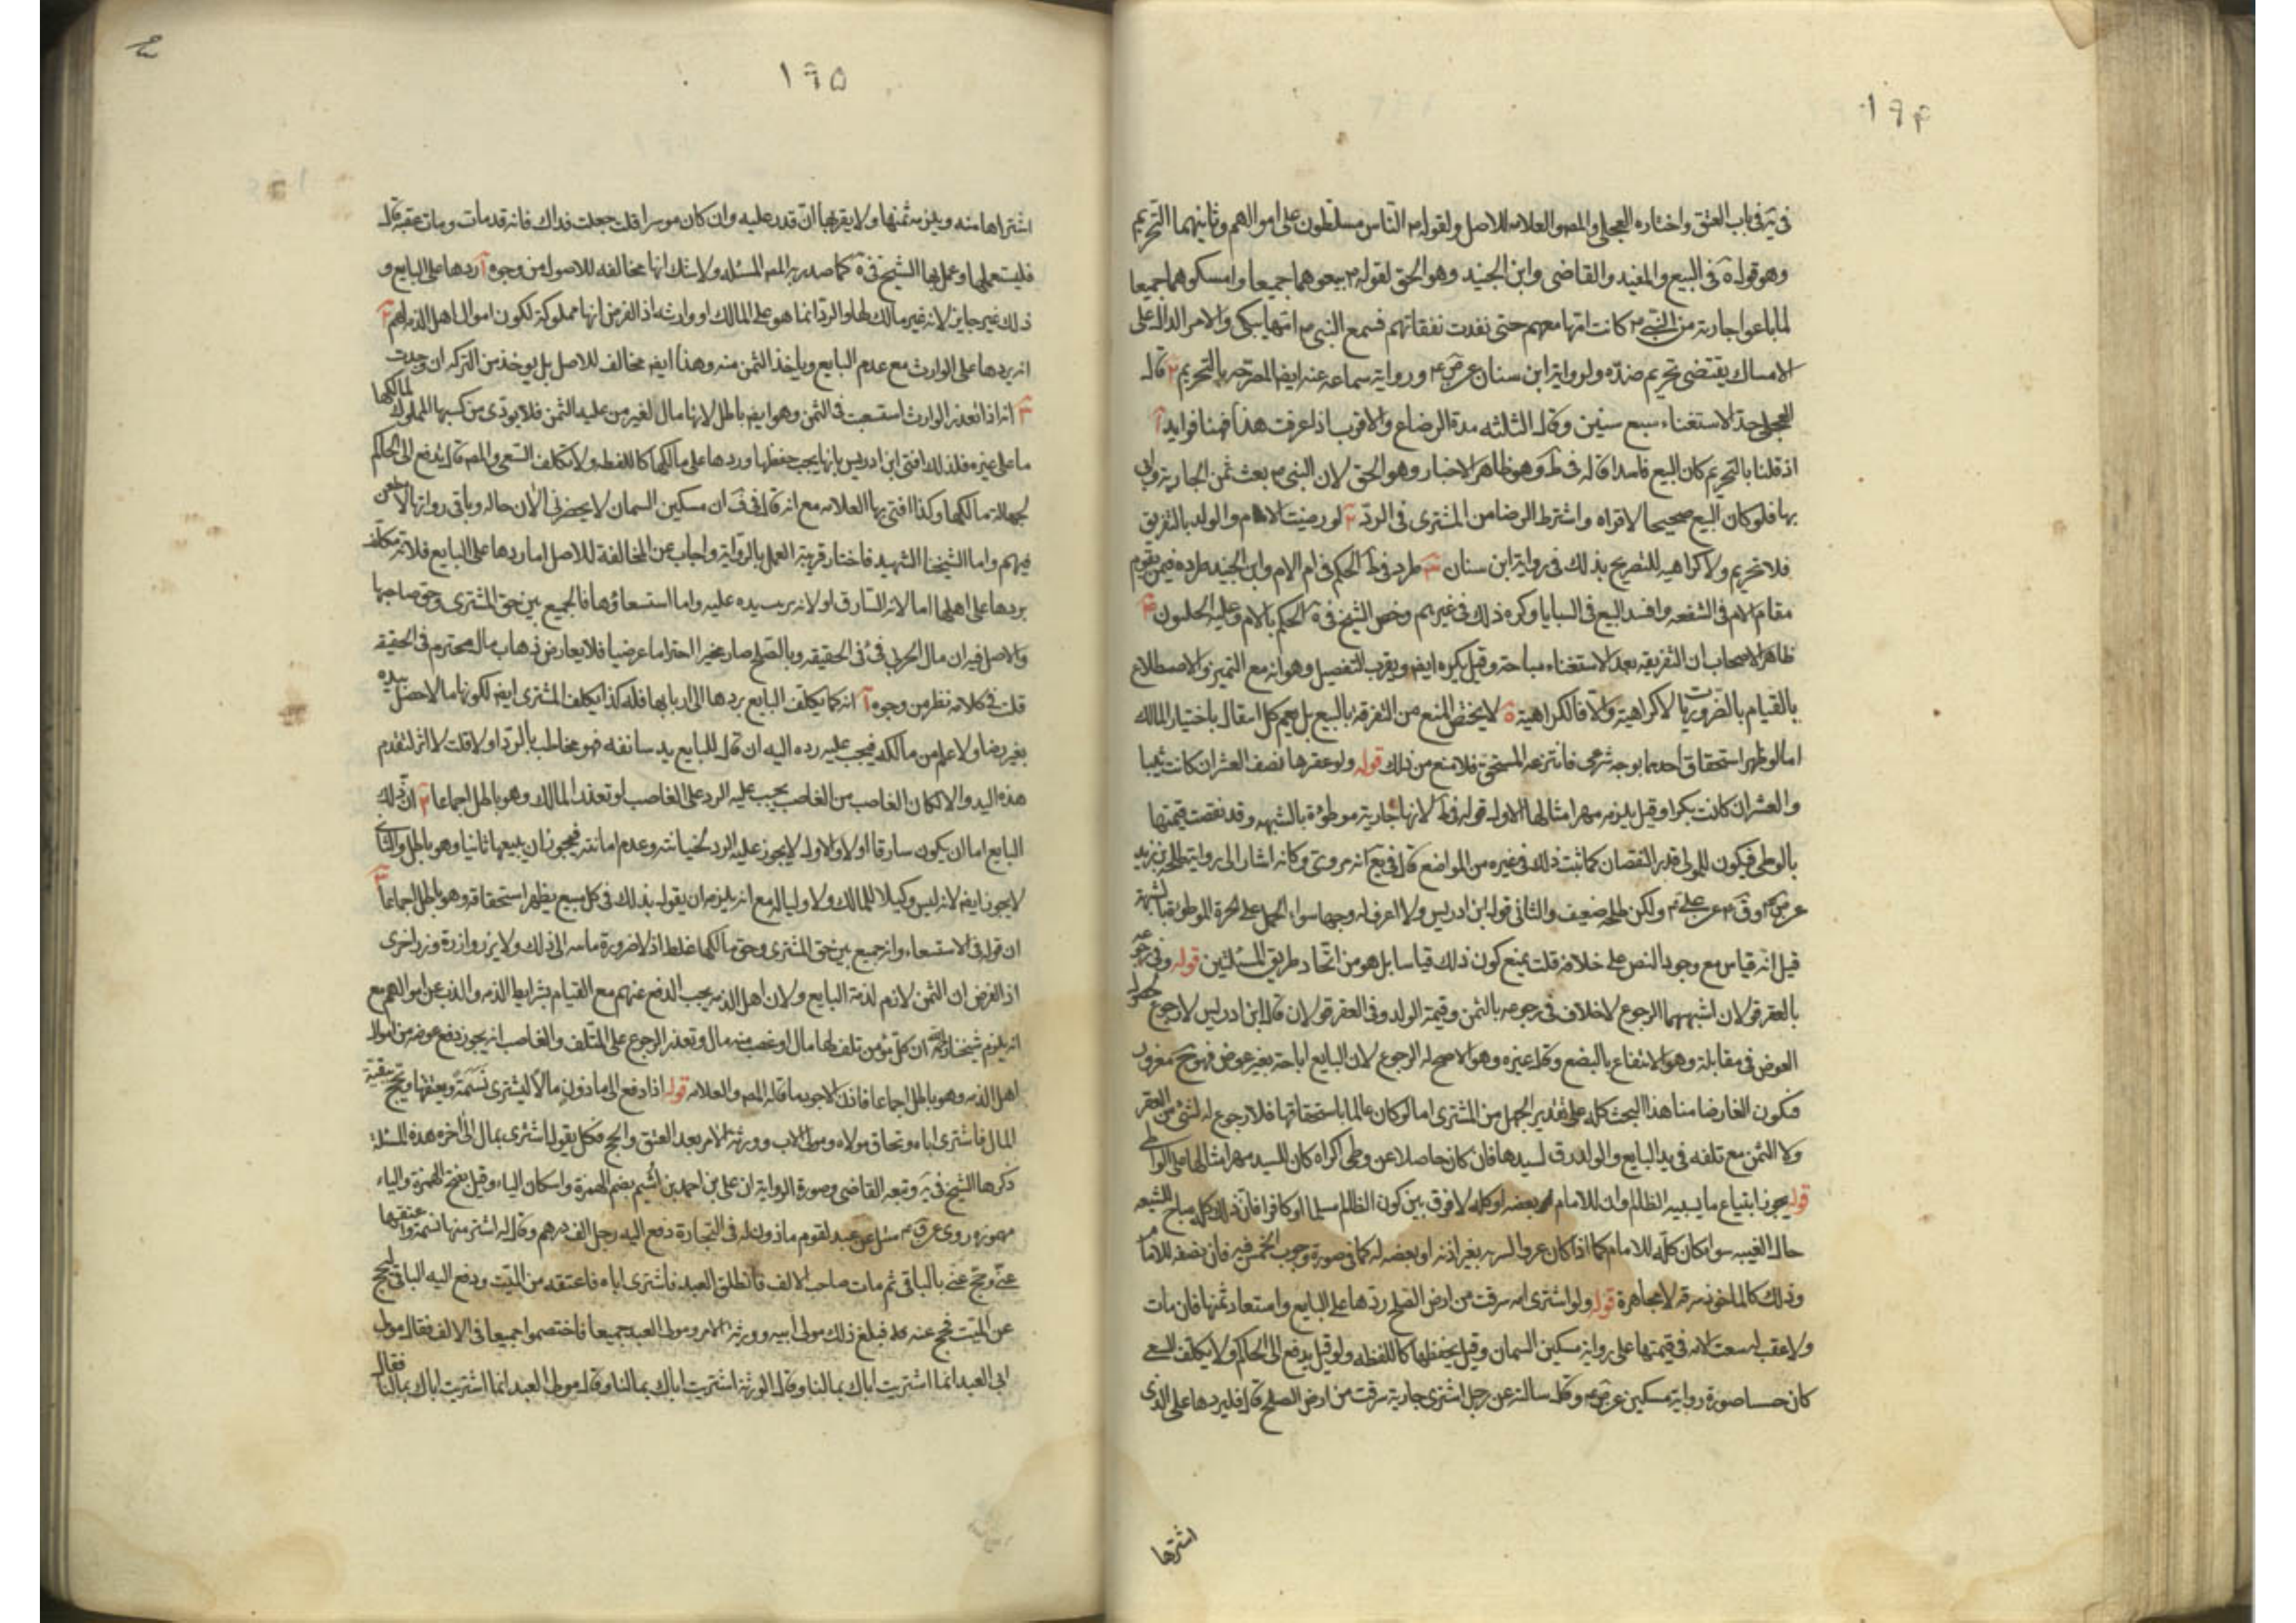 ١٩۴
في ية في باب العتق واختاره العجلي والمص والعلامه للاصل ولقوله م الناس مسلطون على اموالهم وثانيهما التحريم
وهو قوله ة في البيع والمفيد والقاضي وابن الجنيد وهو الحق لقوله م بيعوهما جميعا وامسكوهما جميعا
لما باعوا جارية من السبي كانت امها معهم حتى نفدت نفقاتهم فسمع النبي م امها تبكي والامر الدال على
الامساك يقتضي تحريم ضده ولرواية ابن سنان عن ص ع ورواية سماعه عنه ايض المصرحه بالتحريم ٢ قال
العجلي حد الاستغناء سبع سنين وقال الثلثه مدة الرضاع والاقرب اذا عرفت هذا فهنا فوايد آ
اذ قلنا بالتحريم كان البيع فاسدا قاله في ط وهو ظاهر الاخبار وهو الحق لان النبي م بعث ثمن الجارية واتي
بها فلو كان البيع صحيحا لاقراه واشترط الرضا من المشتري في الرد ٢ لو رضيت الام والولد بالتفريق
فلا تحريم ولا كراهيه للتصريح بذلك في رواية ابن سنان ٣ طرد في ط الحكم في ام الام وابن الجنيد طرده فيمن يقوم
مقام الام في الشفعه وافسد البيع في السبايا وكره ذلك في غيرهم وخص الشيخ في ة الحكم بالام وعليه الحلسون ۴
ظاهر الاصحاب ان التفرقه بعد الاستغناء مباحة وقيل يكره ايض ويقرب التفصيل وهو انه مع التميز والاصطلاع
بالقيام بالضروريات لا كراهية والا فالكراهية ة لا يختص المنع من التفرقة بالبيع بل يعم كل انتقال باختيار المالك
اما لو ظهر استحقاق احدهما بوجه شرعي فانتزعه المستحق فلا منع من ذلك قوله ولو عقرها نصف العشر ان كانت ثيبا
والعشر ان كانت بكرا وقيل يلزمه مهر امثالها الاول قوله في ط لانها جارية موطوءة بالشبهه وقد نقصت قيمتها
بالوطي فيكون للمولى قدر النقصان كما ثبت ذلك في غيره من المواضع قال في يع انه مروي وكانه اشار الى رواية طلحه بن زيد
عن ص ع وق ع عن علي ع ولكن طلحه ضعيف والثاني قول ابن ادريس ولا اعرف له وجها سوا الحمل على الحرة الموطوءة بالشبهة
قيل انه قياس مع وجود النص على خلافه قلت يمنع كون ذلك قياسا بل هو من اتحاد طريق المسئلتين قوله وفي رجوعه
بالعقر قولان اشبههما الرجوع لا خلاف في رجوعه بالثمن وقيمة الولد وفي العقر قولان قال ابن ادريس لا رجوع لحصول
العوض في مقابلة وهو الانتفاع بالبضع وقال غيره وهو الاصح له الرجوع لان البايع اباحه بغير عوض فهو ح مغرور
فيكون الغار ضامنا هذا البحث كله على تقدير الجهل من المشتري اما لو كان عالما باستحقاقها فلا رجوع له لشئ من العقر
ولا الثمن مع تلفه في يد البايع والولد رق لسيدها فان كان حاصلا عن وطي اكراه كان للسيد مهر امثالها على الواطي
قوله يجوز ابتياع ما يسبيه الظالم وان للامام بعضه او كله لا فرق بين كون الظالم مسلما او كافرا فان ذلك كله مباح للشيعه
حال الغيبه سوا كان كله للامام كما اذا كان غزوا لسر بغير اذنه او بعضه له كما في صورة وجوب الخمس فيه فان نصفه للامام
وذلك كالماخوذ سرقه لا مجاهرة قوله ولو اشترى امه سرقت من ارض الصلح ردها على البايع واستعاد ثمنها فان مات
ولا عقب له سعت الامه في قيمتها على رواية مسكين السمان وقيل يحفظها كاللقطه ولو قيل يدفع الى الحاكم ولا يكلف السعي
كان حسا صورة رواية مسكين عن ص ع وقال سالته عن رجل اشترى جارية سرقت من ارض الصلح قال فليردها على الذي
اشترها
١٩۵
اشتراها منه ويلزمه ثمنها ولا يقربها ان قدر عليه وان كان موسرا قلت جعلت فداك فانه قد مات ومات عقبه قال
فليستعملها وعمل بها الشيخ في ة كما صدر به المص المسئله ولا شك انها مخالفه للاصول من وجوه آ ردها على البايع و
ذلك غير جايز لانه غير مالك لها والرد انما هو على المالك او وارثه اذ الفرض انها مملوكة لكون اموال اهل الذمه لهم ٢
انه يردها على الوارث مع عدم البايع ويأخذ الثمن منه وهذا ايض مخالف للاصل بل يوخذ من التركه ان وجدت
٣ انه اذا تعذر الوارث استسعت في الثمن وهو ايض باطل لانها مال لغير من عليه الثمن فلا يودي من كسبها المملوك لمالكها
ما على غيره فلذلك افتى ابن ادريس بانها يجب حفظها وردها على مالكها كاللقطه ولا تكلف السعي والمص قال يدفع الى الحاكم
لجهالة مالكها وكذا افتى بها العلامه مع انه قال في ف ان مسكين السمان لا يحضرني الان حاله وباقي رواتها لا طعن
فيهم واما الشيخنا الشهيد فاختار قريبة العمل بالرواية واجاب عن المخالفة للاصل اما ردها على البايع فلانه مكلف
بردها على اهلها اما لانه السارق او لانه ترتبت يده عليه واما استسعاؤها فالجميع بين حق المشتري وحق صاحبها
والاصل فيه ان مال الحربي في في الحقيقه وبالصلح صار مخيرا احتراما عرضيا فلا يعارض ذهاب مال محترم في الحقيقه
قلت في كلامه نظر من وجوه آ انه كما يكلف البايع بردها الى اربابها فله كذا يكلف المشتري ايض لكونها مالا حصل بيده
بغير رضا ولا علم من مالكه فيجب عليه رده اليه ان قال للبايع يد سابقه فهو مخاطب بالرد اولا قلت لا اثر لتقدم
هذه اليد والا لكان الغاصب من الغاصب يجب عليه الرد على الغاصب لو تعذر المالك وهو باطل اجماعا ٢ ان ذلك
البايع اما ان يكون سارقا او لا والاول لا يجوز عليه الرد لخيانته وعدم امانته فيجوز ان يبيعها ثانيا وهو باطل والثاني
لا يجوز ايض لانه ليس وكيلا للمالك ولا وليا له مع انه يلزمه ان يقول بذلك في كل مبيع يظهر استحقاقه وهو باطل اجماعا ٣
ان قوله في الاستسعاء وانه جميع بين حق المشتري وحق مالكها غلط اذ لا ضرورة ماسه الى ذلك ولا يزر وازرة وزر اخرى
اذ الغرض ان الثمن لازم لذمة البايع ولان اهل الذمه يجب الدفع عنهم مع القيام بشرايط الذمه والذب عن اموالهم مع
انه يلزم شيخنا ان كل مؤمن تلف لها مال او غصب منه مال وتعذر الرجوع على المتلف والغاصب انه يجوز دفع عوضه من اموال
اهل الذمه وهو باطل اجماعا فاذن الاجود ما قاله المص والعلامه قوله اذا دفع الى مأذون مالا ليشتري نسمة ويعتقها ويحج ببقية
المال فاشترى اباه وتحاق مولاه ومولى الاب وورثة الامر بعد العتق والحج فكل يقول اشترى بمال الى اخره هذه المسئلة
ذكرها الشيخ في ية وتبعه القاضي وصورة الرواية ان علي بن احمد بن اشيم بضم الهمزة واسكان الياء وقيل بفتح الهمزة والياء
مهموزه روى عن ق ع سئل عن عبد لقوم ماذون له في التجارة دفع اليه رجل الف درهم وقال له اشتر منها نسمة واعتقها
عني وحج عني بالباقي ثم مات صاحب الالف فانطلق العبد فاشترى اباه فاعتقه من الميت ودفع اليه الباقي ليحج
عن الميت فحج عنه فبلغ ذلك مولى ابيه وورثة الامر ومولى العبد جميعا فاختصموا جميعا في الالف فقال مولى
ابي العبد انما اشتريت اباك بمالنا وقال الورثة اشتريت اباك بمالنا وقال مولى العبد انما اشتريت اباك بمالنا فقال